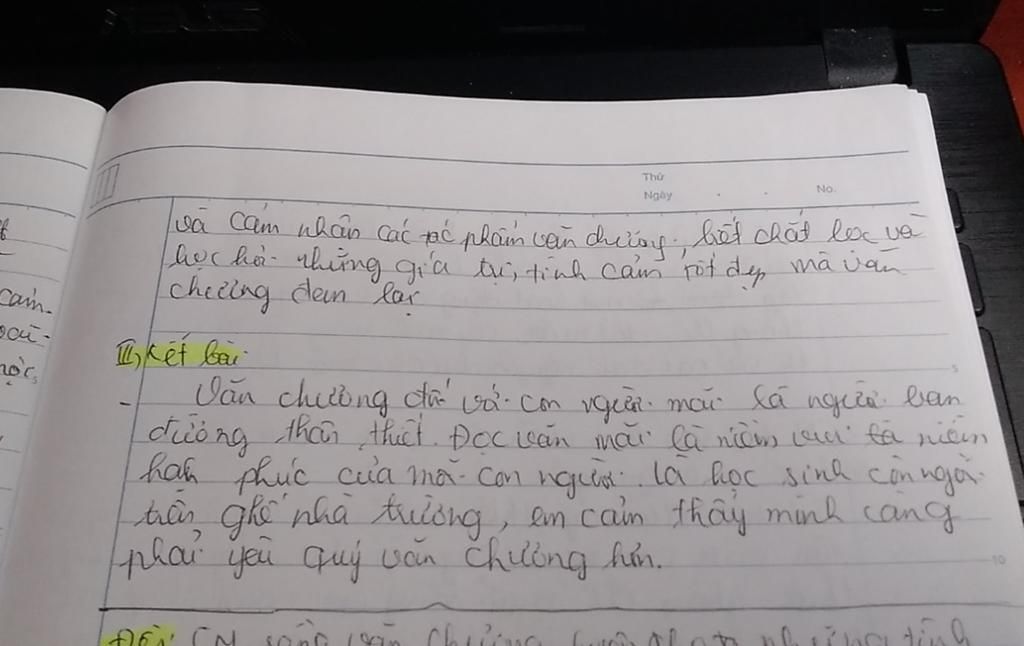 ASUS
Thứ
Ngày
No.
và cảm nhận các tác phẩm văn chương, biết chắt lọc và
học hỏi những giá trị, tình cảm tốt đẹp mà văn
chương đem lại
III, Kết bài
- Văn chương đối với con người mãi là người bạn
đường thân thiết. Đọc văn mãi là niềm vui là niềm
hạnh phúc của mỗi con người. Là học sinh còn ngồi
trên ghế nhà trường, em cảm thấy mình càng
phải yêu quý văn chương hơn.
5
10
Đề: CM rằng văn chương tình